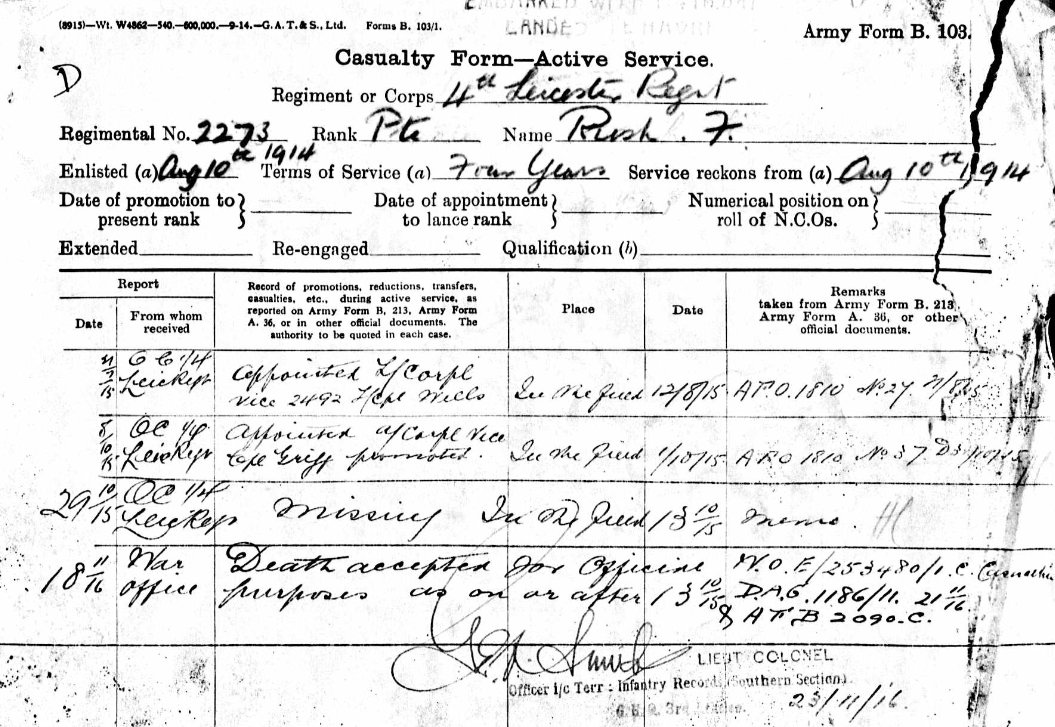 (8915)—Wt. W4862—540.—600,000.—9-14.—G.A.T.& S., Ltd. Forms B. 103/1.
LANDED
Army Form B. 103.
Casualty Form—Active Service.
D
Regiment or Corps 4th Leicester Regt
Regimental No. 2273 Rank Pte Name Rush. F.
Enlisted (a) Aug 10th 1914 Terms of Service (a) Four Years Service reckons from (a) Aug 10th 1914
Date of promotion to present rank
Date of appointment to lance rank
Numerical position on roll of N.C.Os.
Extended Re-engaged Qualification (b)
Report
Date
From whom received
Record of promotions, reductions, transfers, casualties, etc., during active service, as reported on Army Form B, 213, Army Form A. 36, or in other official documents. The authority to be quoted in each case.
Place
Date
Remarks taken from Army Form B. 213, Army Form A. 36, or other official documents.
OC 1/4
Appointed L/Corpl
vice 2492 L/Cpl Wills In the field 12/8/15 1810 No 27
8/10/15 OC 1/4
Appointed a/Corpl vice
Cpl Griff promoted. In the field 1/10/15 1810 No 37
29 10/15 OC 1/4
Missing In the field 13 10/15 memo.
18 11/16 War office Death accepted for Official
purposes as on or after 13 10/15
W.O.E/253480/1.C. Casualties
D.A.G. 1186/11. 21 11/16
& AFB 2090.C.
Smith
LIEUT COLONEL
Officer i/c Terr: Infantry Records, (Southern Section)
23/11/16